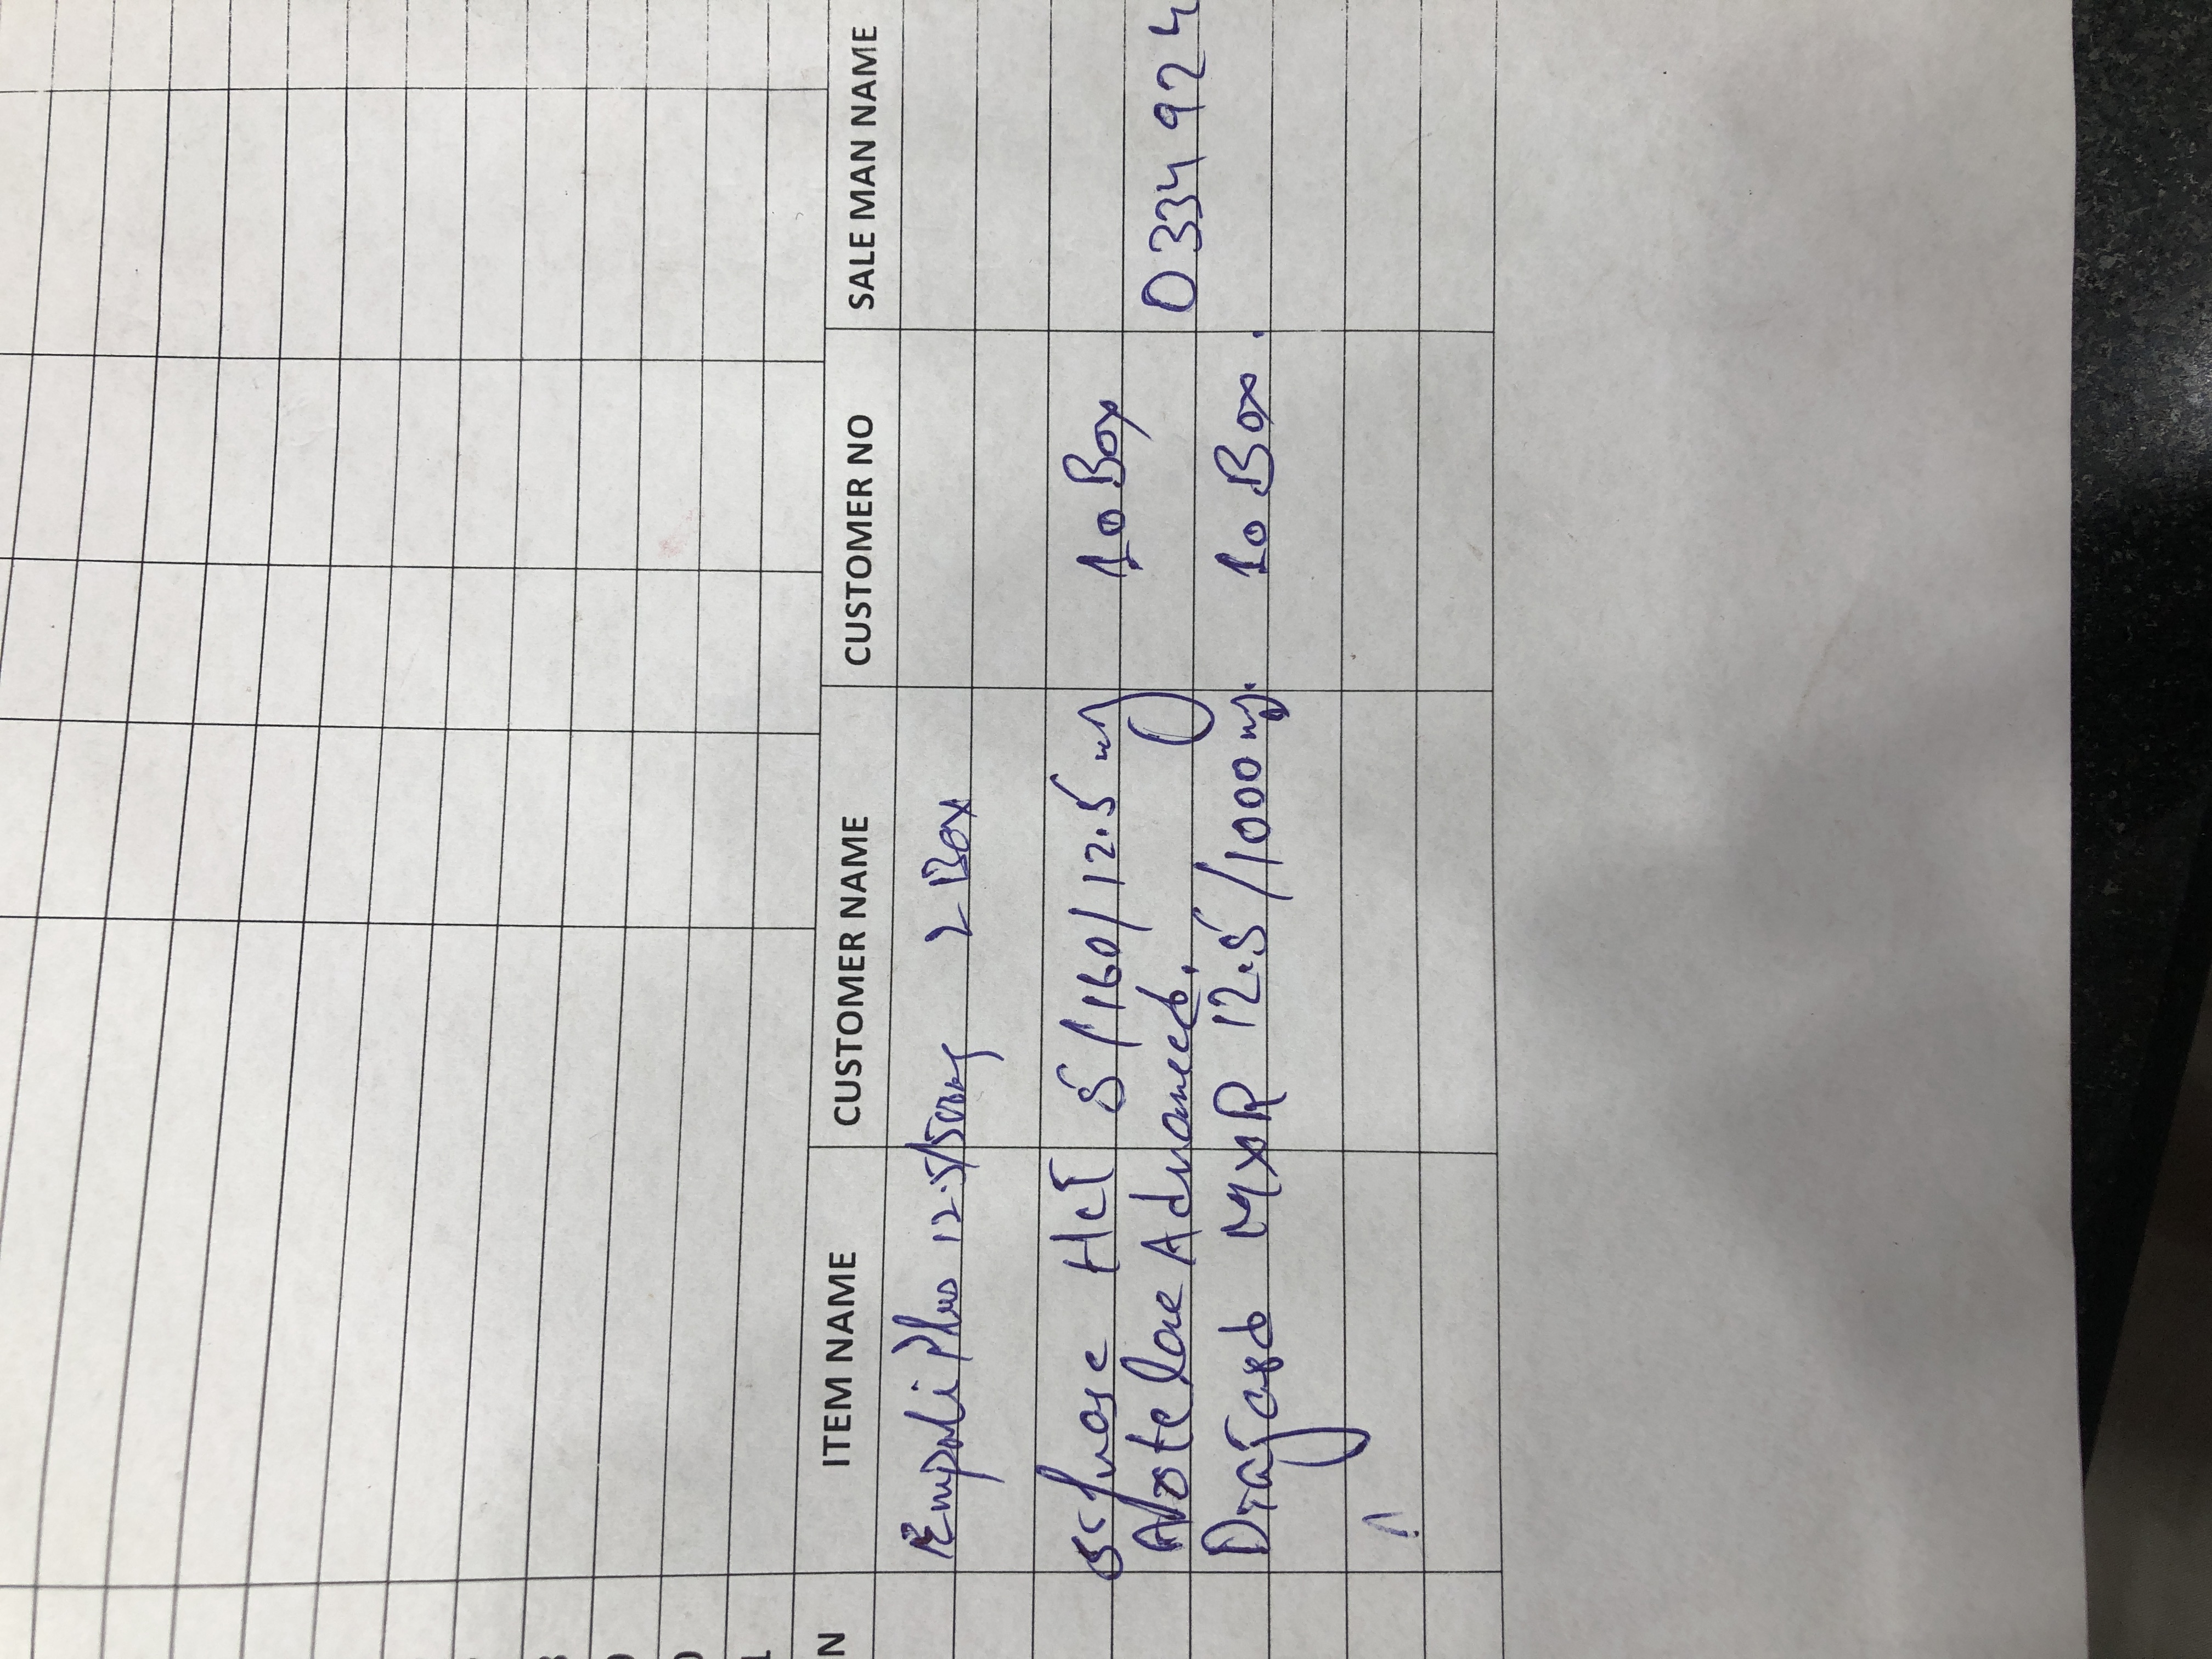 N ITEM NAME CUSTOMER NAME CUSTOMER NO SALE MAN NAME
Empoli Plus 12.5/500mg 2 Box
HCT 5/160/12.5 mg 10 Box
Advanced. 0334924
MXR 12.5/1000 mg. 10 Box.